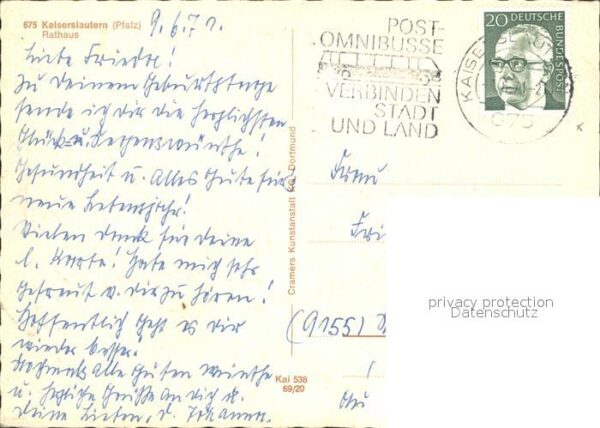 675 Kaiserslautern (Pfalz)
Rathaus
9.6.71.
Liebe Frieda!
Zu Deinem Geburtstage
sende ich Dir die herzlichsten
Glück- u. Segenswünsche!
Gesundheit u. Alles Gute für
neue Lebensjahr!
Vielen Dank für Deine
l. Karte! Habe mich sehr
gefreut v. Dir zu hören!
Hoffentlich geht es Dir
wieder besser!
Nochmals alle guten Wünsche
u. herzliche Grüße an Dich u.
Deine Lieben, D. Johanna.
Cramers Kunstanstalt KG, Dortmund
Kai 538
69/20
POST-
OMNIBUSSE
VERBINDEN
STADT
UND LAND
KAISERSL
675
20 DEUTSCHE
BUNDESPOST
Frau
(9155)
privacy protection
Datenschutz